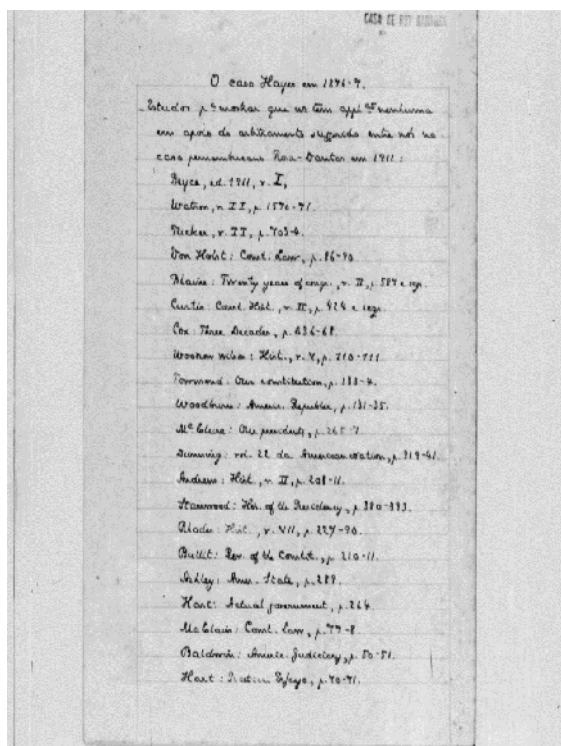 CASA DE RUY BARBOSA
O caso Hayes em 1876-7.
Estudos p.ª mostrar que não tem appl.ção nenhuma
em apoio do arbitramento suggerido entre nós no
caso pernambucano Rosa-Dantas em 1911:
Bryce, ed. 1911, v. I,
Watson, v. II, p. 1570-71.
Tucker, v. II, p. 703-4.
Von Holst: Const. Law, p. 86-90.
Blaine: Twenty years of congr., v. II, p. 587 e segs.
Curtis: Const. Hist., v. II, p. 424 e segs.
Cox: Three Decades, p. 636-68.
Woodrow Wilson: Hist., v. V, p. 110-111.
Townsend: Our constitution, p. 133-4.
Woodburn: Americ. Republic, p. 131-35.
McClure: Our presidents, p. 265-7.
Dunning: vol. 22 da American nation, p. 319-41.
Andrews: Hist., v. II, p. 208-11.
Stanwood: Hist. of the Presidency, p. 380-393.
Rhodes: Hist., v. VII, p. 227-90.
Bullit: Rev. of the Constit., p. 210-11.
Ashley: Amer. State, p. 289.
Hart: Actual government, p. 264.
McClain: Const. Law, p. 77-8.
Baldwin: Americ. Judiciary, p. 50-51.
Hart: p. 70-71.